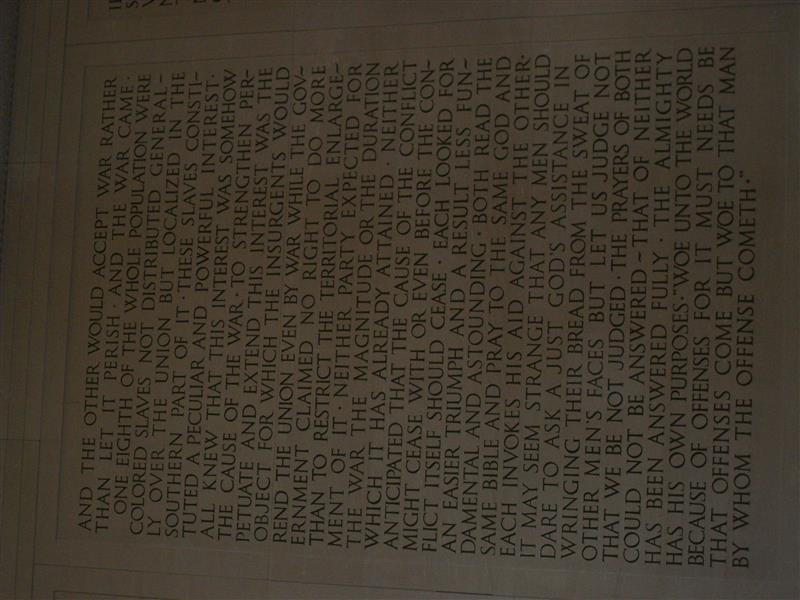 AND THE OTHER WOULD ACCEPT WAR RATHER
THAN LET IT PERISH · AND THE WAR CAME ·
ONE EIGHTH OF THE WHOLE POPULATION WERE
COLORED SLAVES NOT DISTRIBUTED GENERAL-
LY OVER THE UNION BUT LOCALIZED IN THE
SOUTHERN PART OF IT · THESE SLAVES CONSTI-
TUTED A PECULIAR AND POWERFUL INTEREST ·
ALL KNEW THAT THIS INTEREST WAS SOMEHOW
THE CAUSE OF THE WAR · TO STRENGTHEN PER-
PETUATE AND EXTEND THIS INTEREST WAS THE
OBJECT FOR WHICH THE INSURGENTS WOULD
REND THE UNION EVEN BY WAR WHILE THE GOV-
ERNMENT CLAIMED NO RIGHT TO DO MORE
THAN TO RESTRICT THE TERRITORIAL ENLARGE-
MENT OF IT · NEITHER PARTY EXPECTED FOR
THE WAR THE MAGNITUDE OR THE DURATION
WHICH IT HAS ALREADY ATTAINED · NEITHER
ANTICIPATED THAT THE CAUSE OF THE CONFLICT
MIGHT CEASE WITH OR EVEN BEFORE THE CON-
FLICT ITSELF SHOULD CEASE · EACH LOOKED FOR
AN EASIER TRIUMPH AND A RESULT LESS FUN-
DAMENTAL AND ASTOUNDING · BOTH READ THE
SAME BIBLE AND PRAY TO THE SAME GOD AND
EACH INVOKES HIS AID AGAINST THE OTHER ·
IT MAY SEEM STRANGE THAT ANY MEN SHOULD
DARE TO ASK A JUST GOD'S ASSISTANCE IN
WRINGING THEIR BREAD FROM THE SWEAT OF
OTHER MEN'S FACES BUT LET US JUDGE NOT
THAT WE BE NOT JUDGED · THE PRAYERS OF BOTH
COULD NOT BE ANSWERED - THAT OF NEITHER
HAS BEEN ANSWERED FULLY · THE ALMIGHTY
HAS HIS OWN PURPOSES · "WOE UNTO THE WORLD
BECAUSE OF OFFENSES FOR IT MUST NEEDS BE
THAT OFFENSES COME BUT WOE TO THAT MAN
BY WHOM THE OFFENSE COMETH · "